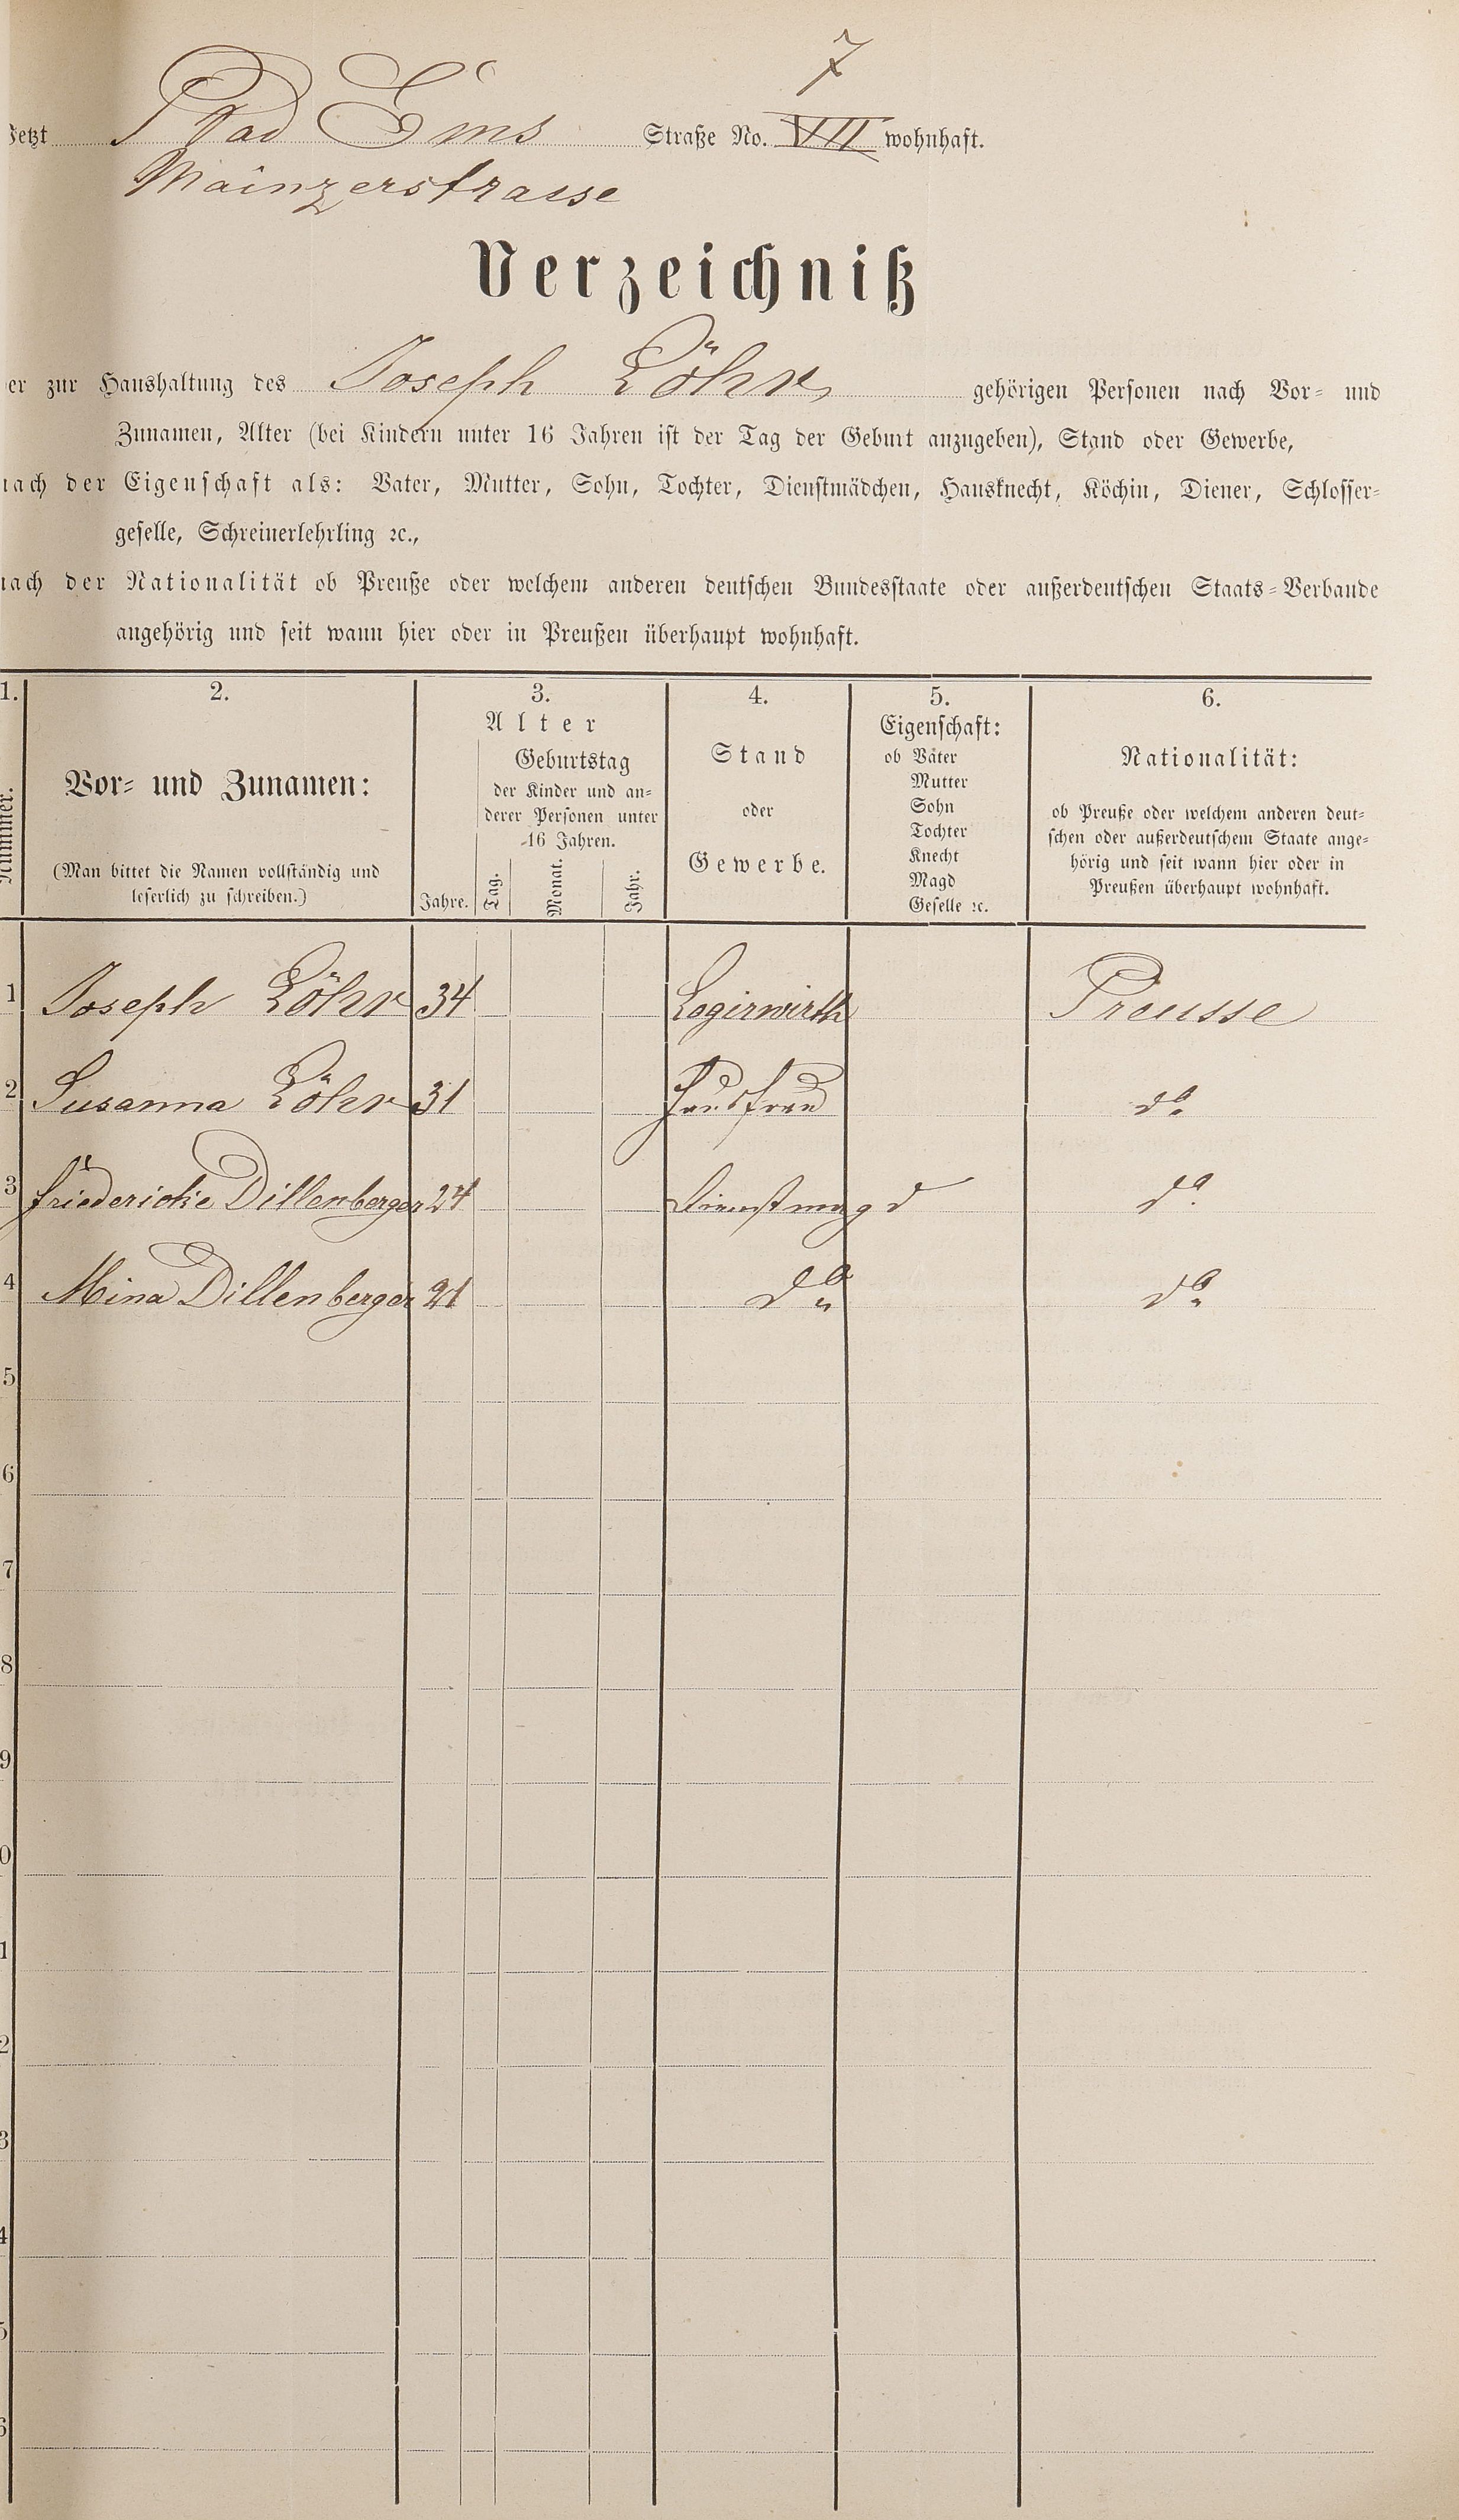 7
Jetzt Bad Ems Straße No. VII wohnhaft.
Mainzerstrasse
Verzeichniß
der zur Haushaltung des Joseph Löhr gehörigen Personen nach Vor- und
Zunamen, Alter (bei Kindern unter 16 Jahren ist der Tag der Geburt anzugeben), Stand oder Gewerbe,
nach der Eigenschaft als: Vater, Mutter, Sohn, Tochter, Dienstmädchen, Hausknecht, Köchin, Diener, Schlosser-
geselle, Schreinerlehrling ꝛc.,
nach der Nationalität ob Preuße oder welchem anderen deutschen Bundesstaate oder außerdeutschen Staats-Verbande
angehörig und seit wann hier oder in Preußen überhaupt wohnhaft.
1. 2. 3. 4. 5. 6.
Nummer.
Vor- und Zunamen:
(Man bittet die Namen vollständig und
leserlich zu schreiben.)
Alter
Jahre.
Geburtstag
der Kinder und an-
derer Personen unter
16 Jahren.
Tag. Monat. Jahr.
Stand
oder
Gewerbe.
Eigenschaft:
ob Vater
Mutter
Sohn
Tochter
Knecht
Magd
Geselle ꝛc.
Nationalität:
ob Preuße oder welchem anderen deut-
schen oder außerdeutschem Staate ange-
hörig und seit wann hier oder in
Preußen überhaupt wohnhaft.
1 Joseph Löhr 34 Logirwirth Preusse
2 Susanna Löhr 31 Hausfrau do.
3 Friedericke Dillenberger 24 Dienstmagd do.
4 Mina Dillenberger 21 do. do.
5
6
7
8
9
0
1
2
3
4
5
6